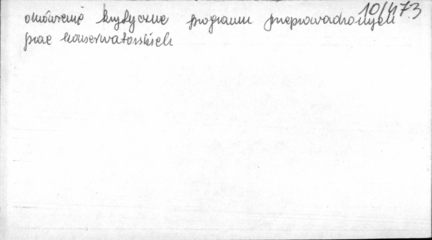 10/473
omówienie krytyczne programu przeprowadzonych
prac konserwatorskich